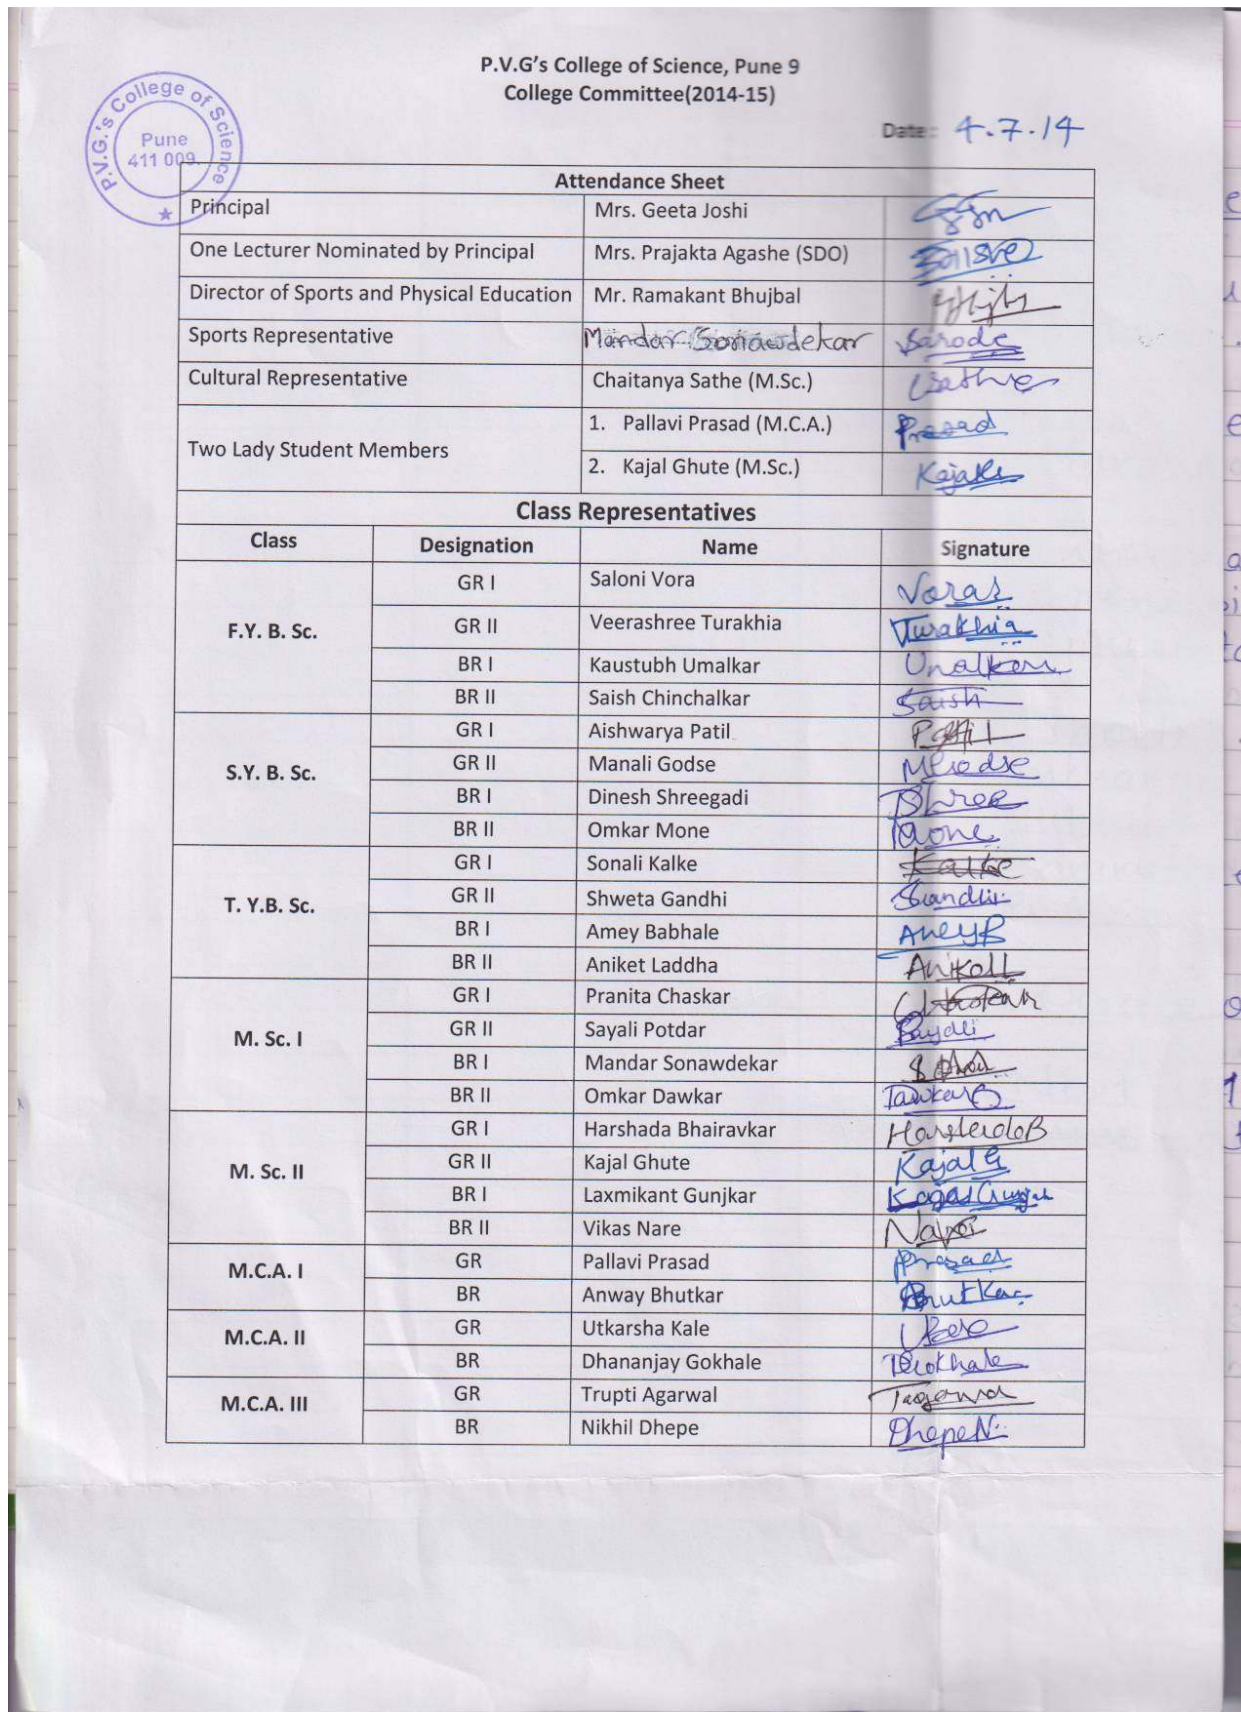 P.V.G's College of Science, Pune 9
College Committee(2014-15)
P.V.G.'s College of Science
Pune
411 009.
Date: 4.7.14
Attendance Sheet
Principal Mrs. Geeta Joshi
One Lecturer Nominated by Principal Mrs. Prajakta Agashe (SDO)
Director of Sports and Physical Education Mr. Ramakant Bhujbal
Sports Representative Mandar Sonawdekar Sarode
Cultural Representative Chaitanya Sathe (M.Sc.) CSathe
Two Lady Student Members
1. Pallavi Prasad (M.C.A.) Prasad
2. Kajal Ghute (M.Sc.)
Class Representatives
Class Designation Name Signature
F.Y. B. Sc.
GR I Saloni Vora VoraS
GR II Veerashree Turakhia Turakhia
BR I Kaustubh Umalkar Umalkar
BR II Saish Chinchalkar Saish
S.Y. B. Sc.
GR I Aishwarya Patil Patil
GR II Manali Godse MGodse
BR I Dinesh Shreegadi
BR II Omkar Mone
T. Y.B. Sc.
GR I Sonali Kalke Kalke
GR II Shweta Gandhi
BR I Amey Babhale AmeyB
BR II Aniket Laddha
M. Sc. I
GR I Pranita Chaskar
GR II Sayali Potdar Sayali
BR I Mandar Sonawdekar
BR II Omkar Dawkar DawkarO
M. Sc. II
GR I Harshada Bhairavkar HarshadaB
GR II Kajal Ghute KajalG
BR I Laxmikant Gunjkar
BR II Vikas Nare Nare
M.C.A. I
GR Pallavi Prasad Prasad
BR Anway Bhutkar Bhutkar
M.C.A. II
GR Utkarsha Kale
BR Dhananjay Gokhale DGokhale
M.C.A. III
GR Trupti Agarwal
BR Nikhil Dhepe DhepeN.